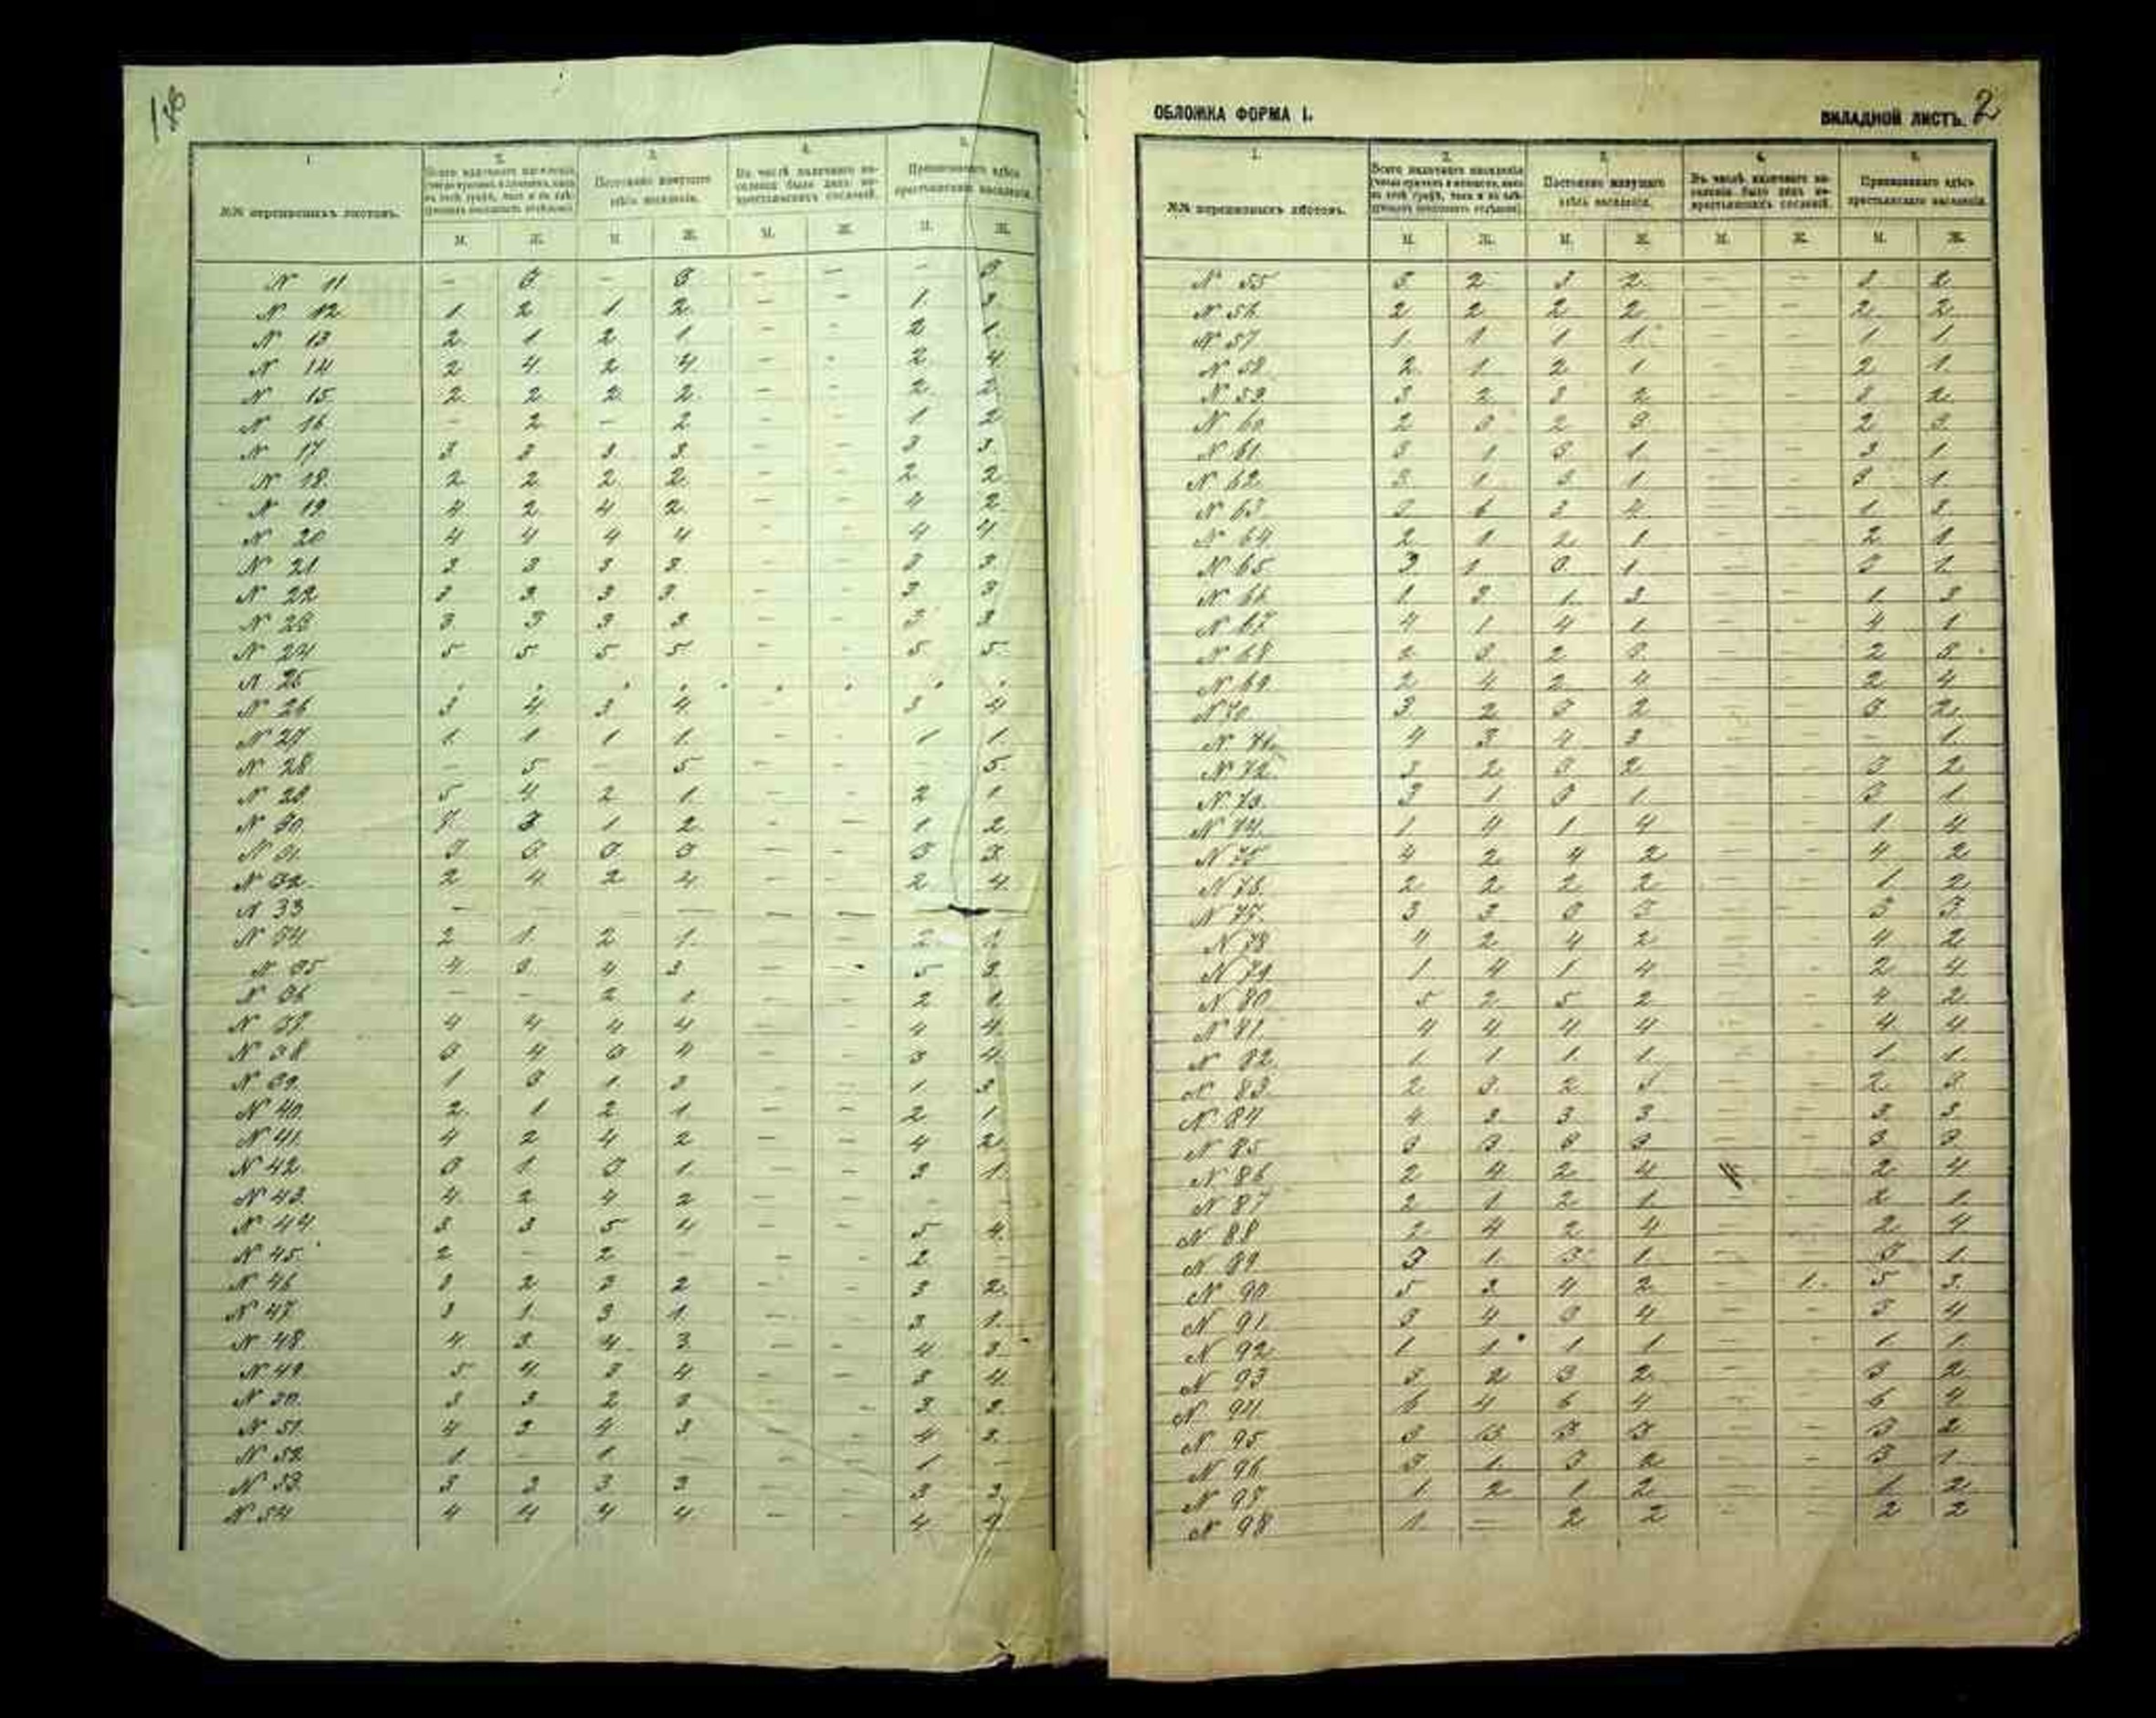 1.
2.
3.
4.
5.
№№ переписныхъ листовъ.
Постоянно живущаго здѣсь населенія.
Приписаннаго здѣсь крестьянскаго населенія.
М. Ж. М. Ж. М. Ж. М. Ж.
N 11 – 3 – 3 – – – 3
N 12 1 2 1 2 – – 1 3
N 13 2 1 2 1 – – 2 1
N 14 2 4 2 4 – – 2 4
N 15 2 2 2 2 – – 2 2
N 16 – 2 – 2 – – 1 2
N 17 3 3 3 3 – – 3 3
N 18 2 2 2 2 – – 2 2
N 19 4 2 4 2 – – 4 2
N 20 4 4 4 4 – – 4 4
N 21 3 3 3 3 – – 3 3
N 22 3 3 3 3 – – 3 3
N 23 3 3 3 3 – – 3 3
N 24 5 5 5 5 – – 5 5
N 25
N 26 3 4 3 4 – – 3 4
N 27 1 1 1 1 – – 1 1
N 28 – 5 – 5 – – – 5
N 29 5 4 2 1 – – 2 1
N 30 3 1 2 – – 1 2
N 31 3 3 3 3 – – 3 3
N 32 2 4 2 4 – – 2 4
N 33 – – – – – – –
N 34 2 1 2 1 – – 2 1
N 35 4 3 4 3 – – 5 3
N 36 – – 2 1 – – 2 1
N 37 4 4 4 4 – – 4 4
N 38 3 4 3 4 – – 3 4
N 39 1 3 1 3 – – 1 3
N 40 2 1 2 1 – – 2 1
N 41 4 2 4 2 – – 4 2
N 42 3 1 3 1 – – 3 1
N 43 4 2 4 2 – – – –
N 44 3 3 5 4 – – 5 4
N 45 2 – 2 – – – 2 –
N 46 3 2 3 2 – – 3 2
N 47 3 1 3 1 – – 3 1
N 48 4 3 4 3 – – 4 3
N 49 5 4 3 4 – – 3 4
N 50 3 3 2 3 – – 3 3
N 51 4 3 4 3 – – 4 3
N 52 1 – 1 – – – 1 –
N 53 3 3 3 3 – – 3 3
N 54 4 4 4 4 – – 4 4
ОБЛОЖКА ФОРМА I.
ВКЛАДНОЙ ЛИСТЪ. 2
1.
2.
3.
4.
5.
№№ переписныхъ листовъ.
Всего наличнаго населенія
Постоянно живущаго здѣсь населенія.
Въ числѣ наличнаго населенія было лицъ не-крестьянскихъ сословій.
Приписаннаго здѣсь крестьянскаго населенія.
М. Ж. М. Ж. М. Ж. М. Ж.
N 55 3 2 3 2 – – 3 2
N 56 2 2 2 2 – – 2 2
N 57 1 1 1 1 – – 1 1
N 58 2 1 2 1 – – 2 1
N 59 3 2 3 2 – – 3 2
N 60 2 3 2 3 – – 2 3
N 61 3 1 3 1 – – 3 1
N 62 3 1 3 1 – – 3 1
N 63 3 6 3 4 – – 1 3
N 64 2 1 2 1 – – 2 1
N 65 3 1 3 1 – – 3 1
N 66 1 3 1 3 – – 1 3
N 67 4 1 4 1 – – 4 1
N 68 2 3 2 3 – – 2 3
N 69 2 4 2 4 – – 2 4
N 70 3 2 3 2 – – 3 2
N 71 4 3 4 3 – – – 1
N 72 3 2 3 2 – – 3 2
N 73 3 1 3 1 – – 3 1
N 74 1 4 1 4 – – 1 4
N 75 4 2 4 2 – – 4 2
N 76 2 2 2 2 – – 1 2
N 77 3 3 3 3 – – 3 3
N 78 4 2 4 2 – – 4 2
N 79 1 4 1 4 – – 2 4
N 80 5 2 5 2 – – 4 2
N 81 4 4 4 4 – – 4 4
N 82 1 1 1 1 – – 1 1
N 83 2 3 2 3 – – 2 3
N 84 4 3 3 3 – – 3 3
N 85 3 3 3 3 – – 3 3
N 86 2 4 2 4 – 2 4
N 87 2 1 2 1 – – 2 1
N 88 2 4 2 4 – – 2 4
N 89 3 1 3 1 – – 3 1
N 90 5 3 4 2 – 1 5 3
N 91 3 4 3 4 – – 3 4
N 92 1 1 1 1 – – 1 1
N 93 3 2 3 2 – – 3 2
N 94 6 4 6 4 – – 6 4
N 95 3 3 3 3 – – 3 2
N 96 3 1 3 2 – – 3 1
N 97 1 2 1 2 – – 1 2
N 98 1 – 2 2 – – 2 2